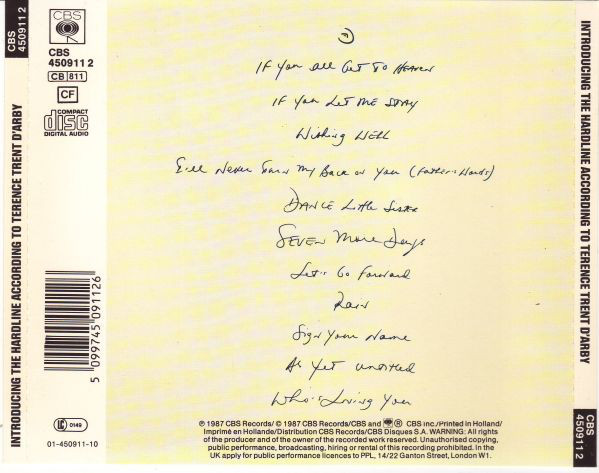 CBS
4509112
INTRODUCING THE HARDLINE ACCORDING TO TERENCE TRENT D'ARBY
CBS
CBS
450911 2
CB 811
CF
COMPACT
disc
DIGITAL AUDIO
5 099745 091126
LC 0149
01-450911-10
If You All Get To Heaven
If You Let Me Stay
Wishing Well
I'll Never Turn My Back on You (Father's Words)
Dance Little Sister
Seven More Days
Let's Go Forward
Rain
Sign Your Name
As Yet Untitled
Who's Loving You
℗ 1987 CBS Records/ © 1987 CBS Records/CBS and ® CBS inc./Printed in Holland/
Imprimé en Holland/Distribution CBS Records/CBS Disques S.A. WARNING: All rights
of the producer and of the owner of the recorded work reserved. Unauthorised copying,
public performance, broadcasting, hiring or rental of this recording prohibited. In the
UK apply for public performance licences to PPL, 14/22 Ganton Street, London W1.
INTRODUCING THE HARDLINE ACCORDING TO TERENCE TRENT D'ARBY
CBS
450911 2